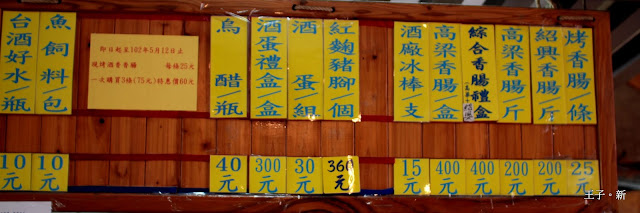 台酒好水/瓶
魚飼料/包
即日起至102年5月12日止
現烤酒香香腸 每條25元
一次購買3條(75元)特惠價60元
烏醋/瓶
酒蛋禮盒/盒
酒蛋/組
紅麴豬腳/個
酒廠冰棒/支
高梁香腸/斤
綜合香腸禮盒
高梁香腸/斤
紹興香腸/斤
烤香腸/條
10元
10元
40元
300元
30元
360元
15元
400元
400元
200元
200元
25元
王子。新